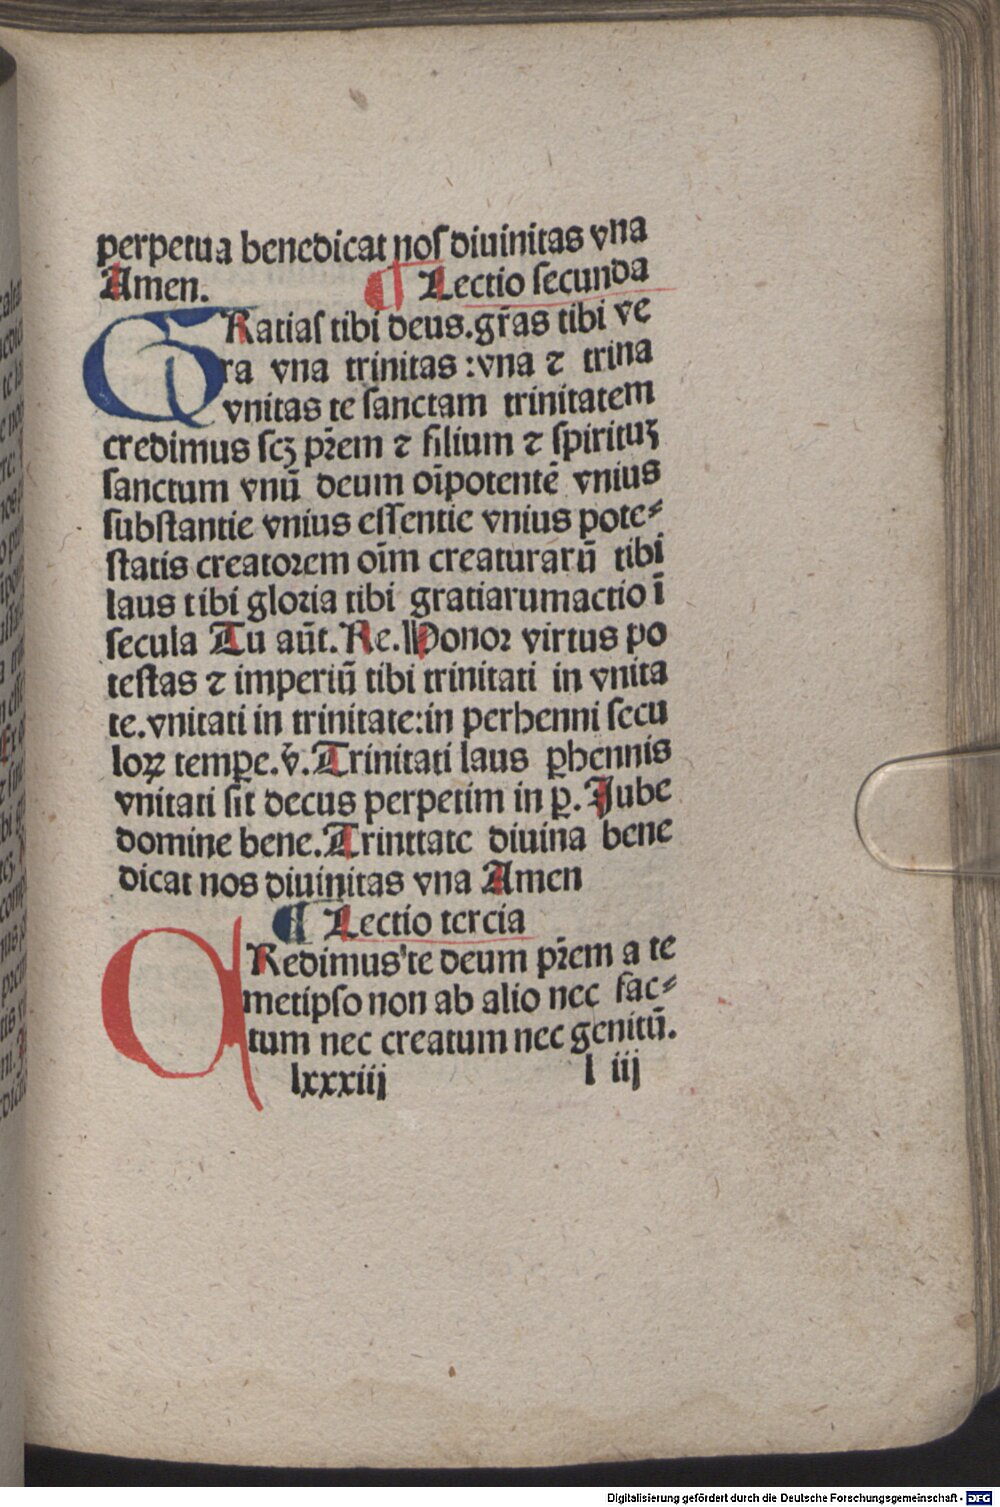 perpetua benedicat nos diuinitas vna
Amen. ¶ Lectio secunda
GRatias tibi deus.gr̄as tibi ve
ra vna trinitas :vna ⁊ trina
vnitas te sanctam trinitatem
credimus scꝫ pr̄em ⁊ filium ⁊ spirituꝫ
sanctum vnū deum oīpotentē vnius
substantie vnius essentie vnius pote⸗
statis creatoꝛem oīm creaturarū tibi
laus tibi gloꝛia tibi gratiarumactio ī
secula Tu aūt. Re. Honoꝛ virtus po
testas ⁊ imperiū tibi trinitati in vnita
te.vnitati in trinitate:in perhenni secu
loꝝ temꝑe.v̄.Trinitati laus ꝑhennis
vnitati sit decus perpetim in ꝑ. Jube
domine bene.Trinttate diuina bene
dicat nos diuinitas vna Amen
¶ Lectio tercia
Redimus te deum pr̄em a te
metipso non ab alio nec fac⸗
tum nec creatum nec genitū.
lxxxiij l iij
Digitalisierung gefördert durch die Deutsche Forschungsgemeinschaft - DFG